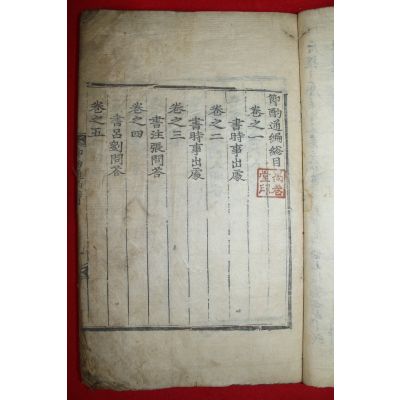 節酌通編總目
卷之一
書時事出處
卷之二
書時事出處
卷之三
書汪張問答
卷之四
書呂劉問答
卷之五